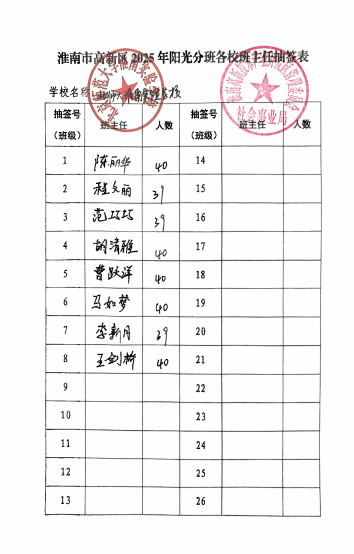 淮南市高新区 2025 年阳光分班各校班主任抽签表
学校名称:
抽签号(班级) 班主任 人数 抽签号(班级) 班主任 人数
1 陈丽华 40 14
2 程文丽 39 15
3 范巧巧 39 16
4 胡清雅 40 17
5 曹跃洋 40 18
6 马如梦 40 19
7 李新月 39 20
8 王剑桥 40 21
9 22
10 23
11 24
12 25
13 26
社会事业局